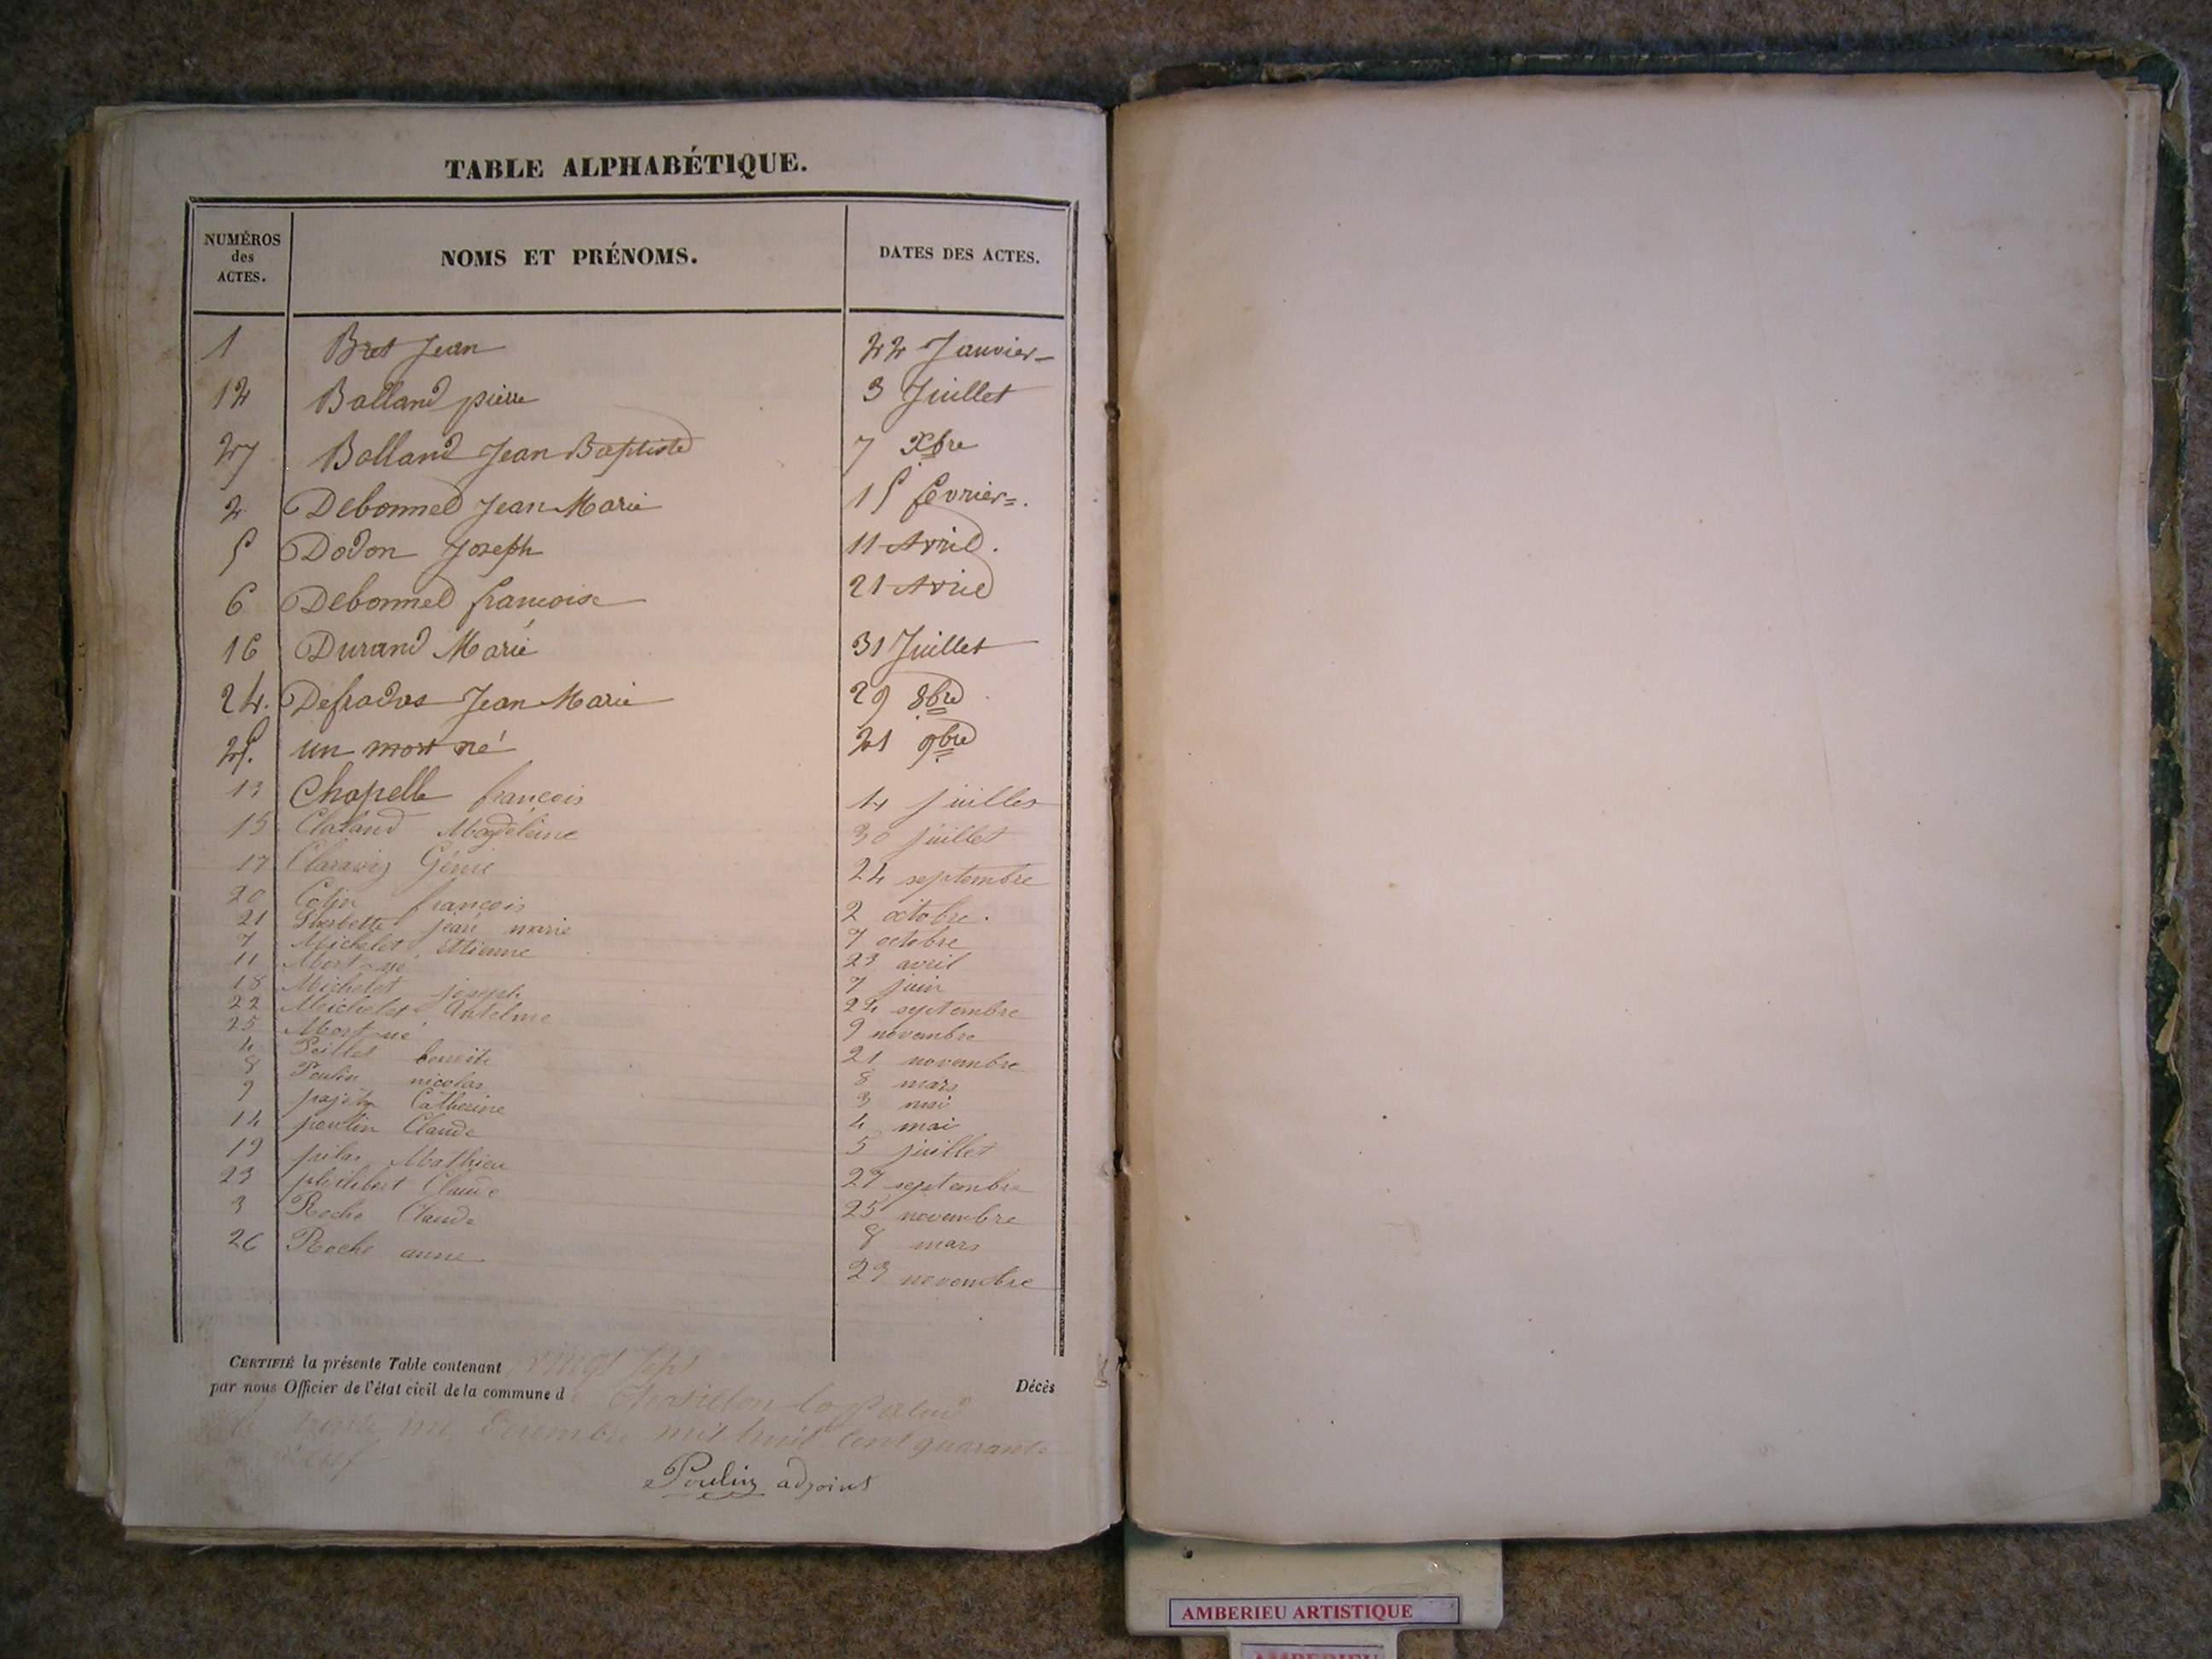 TABLE ALPHABÉTIQUE.
NUMÉROS des ACTES. NOMS ET PRÉNOMS. DATES DES ACTES.
1 Bret Jean 22 Janvier
12 Balland pierre 3 Juillet
27 Balland Jean Baptiste 7 Xbre
2 Debonnel Jean Marie 15 fevrier
5 Dodon Joseph 11 Avril.
6 Debonnel francoise 21 Avril
16 Durand Marie 31 Juillet
24. Defradas Jean Marie 29 8bre
25. un mort né 21 9bre
13 Chapelle françois 4 juillet
15 Magdeleine 30 juillet
17 Génie 24 septembre
20 Colin françois 2 octobre.
21 jean marie 7 octobre
7 Michelet Etienne 23 avril
11 Mort né 7 juin
18 Michelet joseph 24 septembre
22 Michelet Antelme 9 novembre
25 Mort né 21 novembre
4 benoite 8 mars
8 Poulin nicolas 3 mai
9 Catherine 4 mai
14 poulin Claude 5 juillet
19 Mathieu 27 septembre
23 philibert Claude 25 novembre
3 Roche Claude 8 mars
26 Roche anne 23 novembre
CERTIFIÉ la présente Table contenant vingt sept Décès
par nous Officier de l'état civil de la commune d Chatillon la palud
le trente un Decembre mil huit cent quarante
neuf
Poulin adjoint
AMBERIEU ARTISTIQUE
AMBERIEU